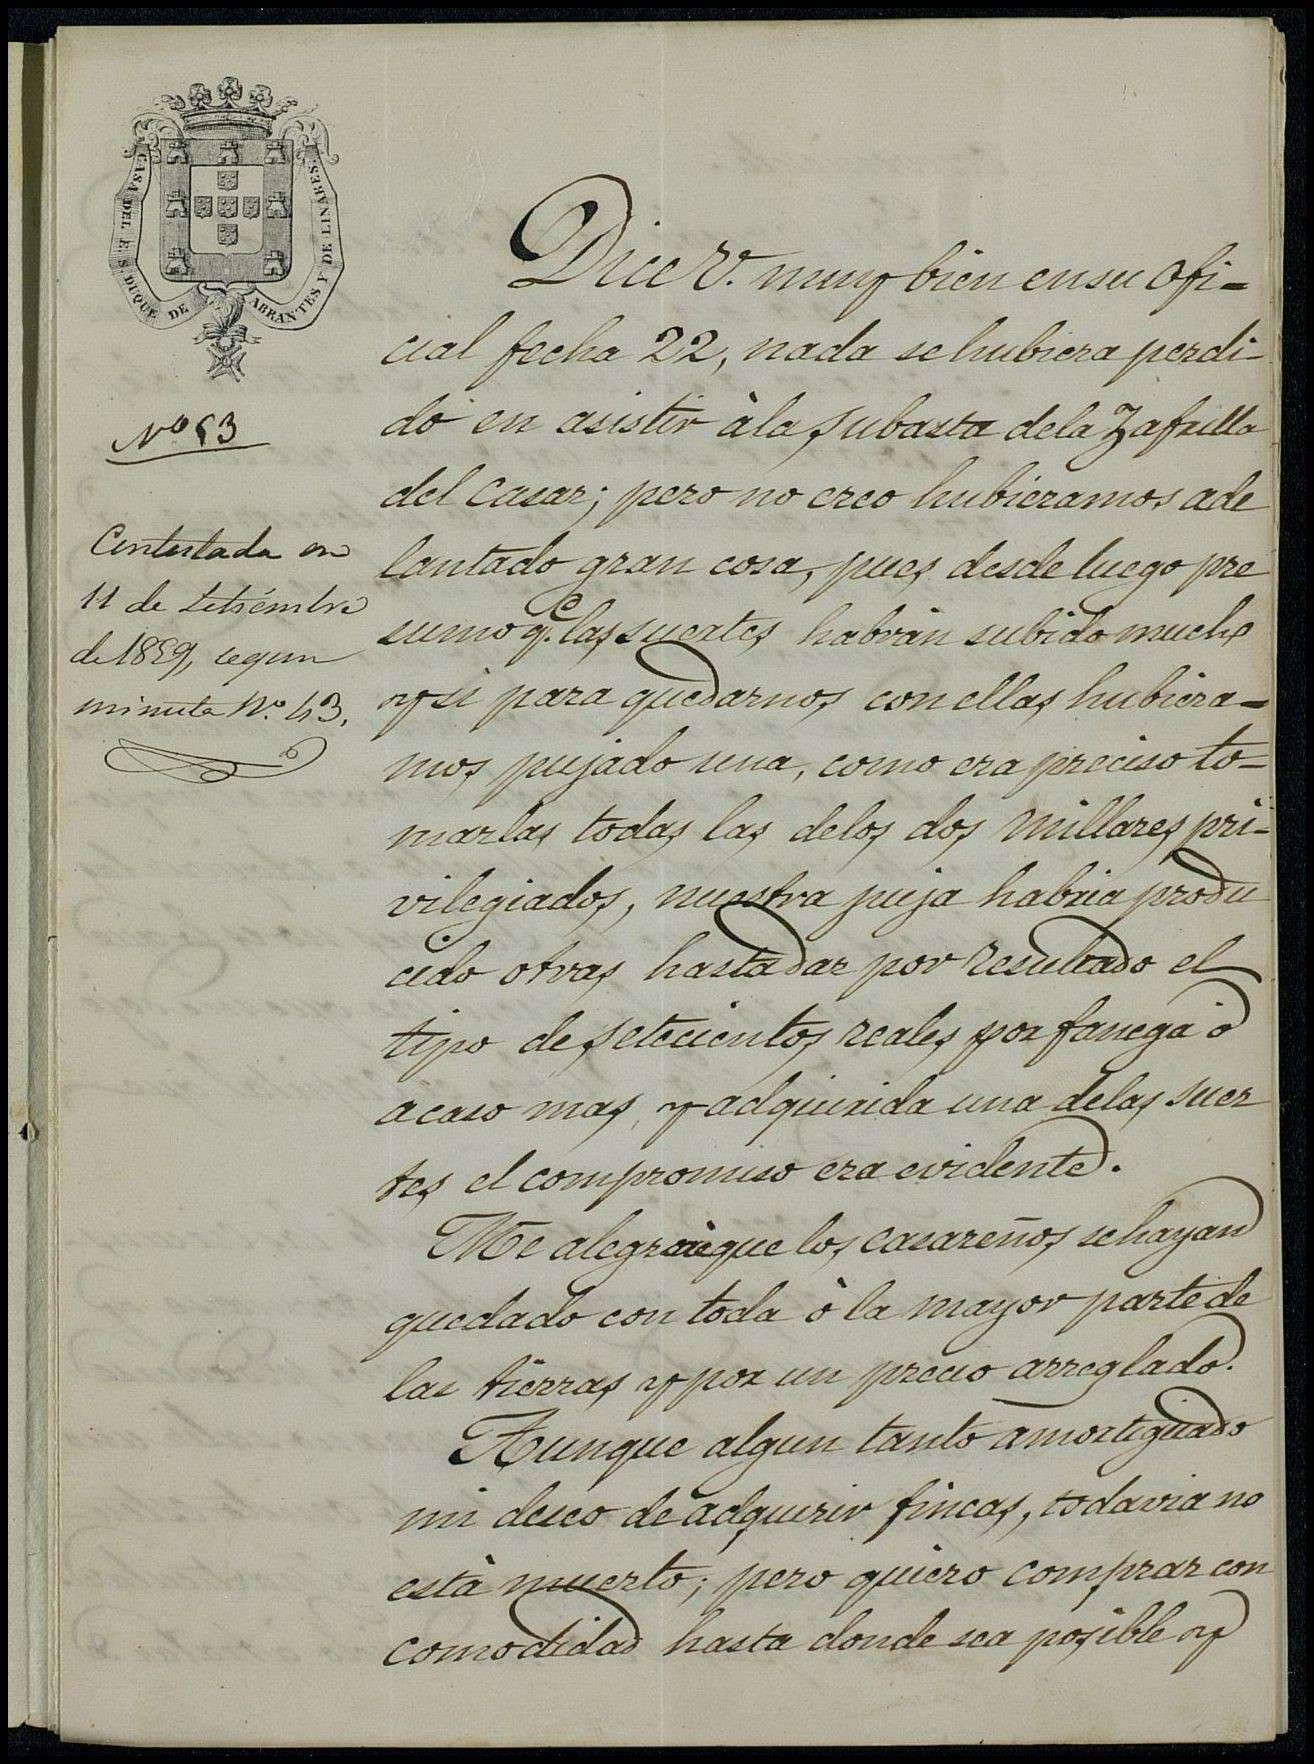 CASA DEL E. S. DUQUE DE ABRANTES Y DE LINARES.
Nº 53
Contestada en
11 de Setiembre
de 1859, segun
minuta Nº. 43.
Dice V. muy bien en su ofi-
cial fecha 22, nada se hubiera perdi-
do en asistir à la subasta de la Zafrilla
del Casar; pero no creo hubieramos ade
lantado gran cosa, pues desde luego pre
sumo q.e las suertes habràn subido mucho
y si para quedarnos con ellas hubiera-
mos pujado una, como era preciso to-
marlas todas las de los dos millares pri-
vilegiados, nuestra puja habria produ
cido otras hasta dar por resultado el
tipo de setecientos reales por fanega ò
acaso mas, y adquirida una de las suer
tes el compromiso era evidente.
Me alegraré que los casareños se hayan
quedado con toda ò la mayor parte de
las tierras y por un precio arreglado.
Aunque algun tanto amortiguado
mi deseo de adquirir fincas, todavia no
està muerto; pero quiero comprar con
comodidad hasta donde sea posible y